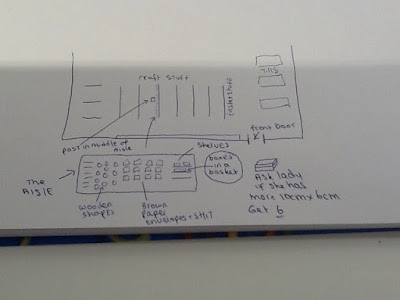 craft stuff
TILLS
easter stuff
post in middle of
Aisle
front door
shelves
boxes
in a
basket
The
AISLE
wooden
shapes
Brown
paper
envelopes + SHIT
Ask lady
if she has
more 10cm x 6cm
Get 6